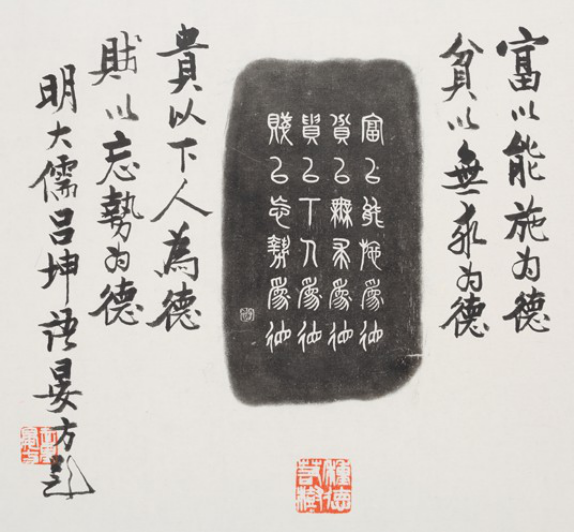 富以能施为德
貧以無求为德
富以能施為德
貧以無求為德
貴以下人為德
賤以忘勢為德
貴以下人為德
賤以忘勢为德
明大儒吕坤語晏方題